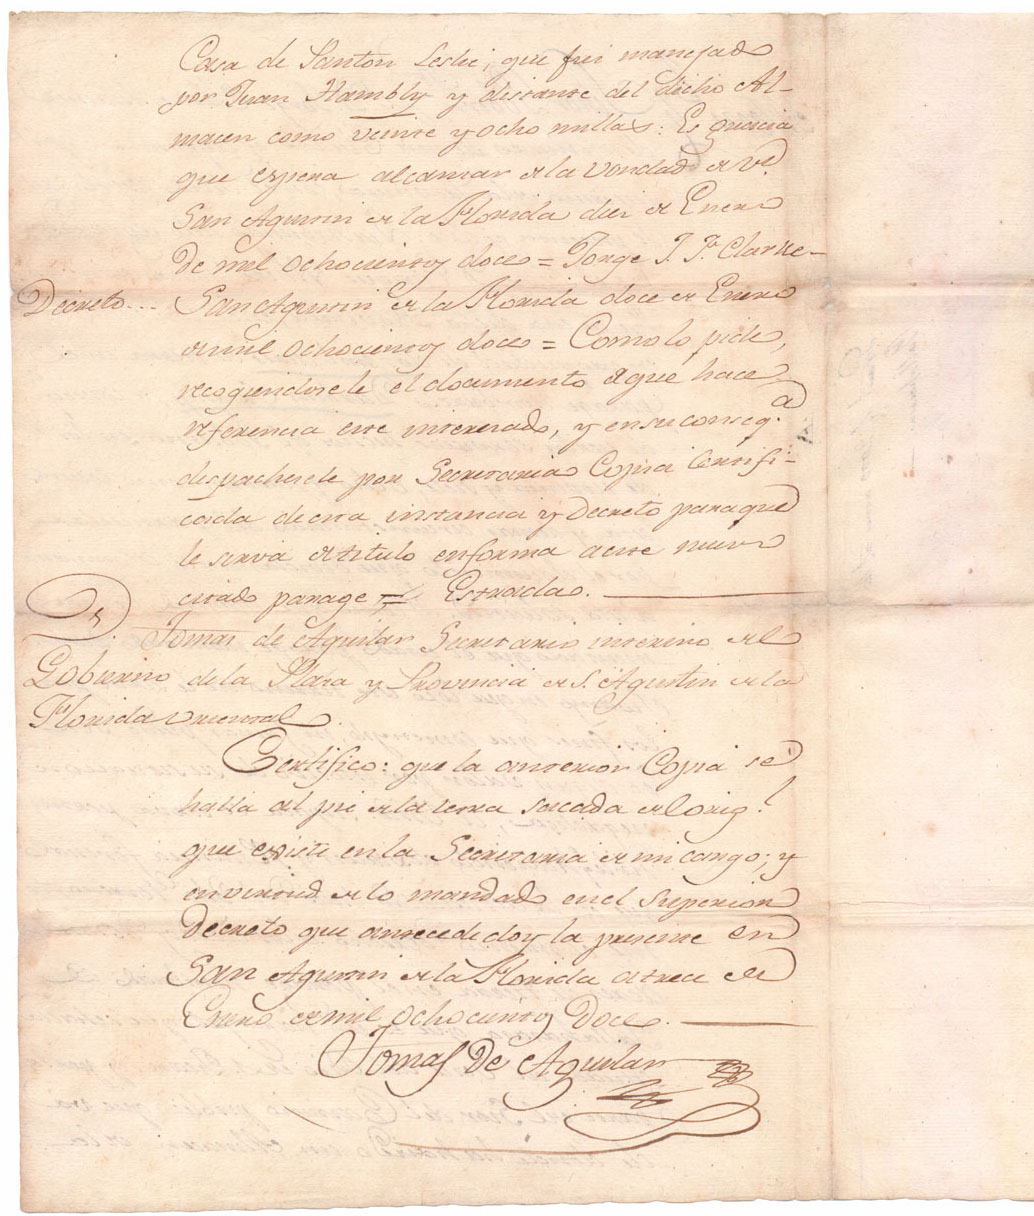 Casa de Panton Leslie, que fue manejado
por Juan Hambly y distante del dicho Al-
macen como veinte y ocho millas: Es gracia
que espera alcanzar de la vondad de VS.
San Agustin de la Florida diez de Enero
De mil ochocientos doce = Jorge J. F. Clarke -
Decreto... San Agustin de la Florida doce de Enero
de mil ochocientos doce = Como lo pide,
recogiendosele el documento de que hace
referencia este interesado, y en su conseqª
despachesele por Secretaria Copia Certifi-
cada de esta instancia y Decreto para que
le sirva de titulo en forma a este nuevo
citado parage = Estrada.
Dn. Tomas de Aguilar Secretario interino del
Gobierno de la Plaza y Provincia de S. Agustin de la
Florida oriental.
Certifico: que la anterior Copia se
halla al pie de la letra sacada del orig.l
que existe en la Secretaria de mi cargo; y
en virtud de lo mandado en el Superior
Decreto que antecede doy la presente en
San Agustin de la Florida a trece de
Enero de mil ochocientos Doce.
Tomas De Aguilar